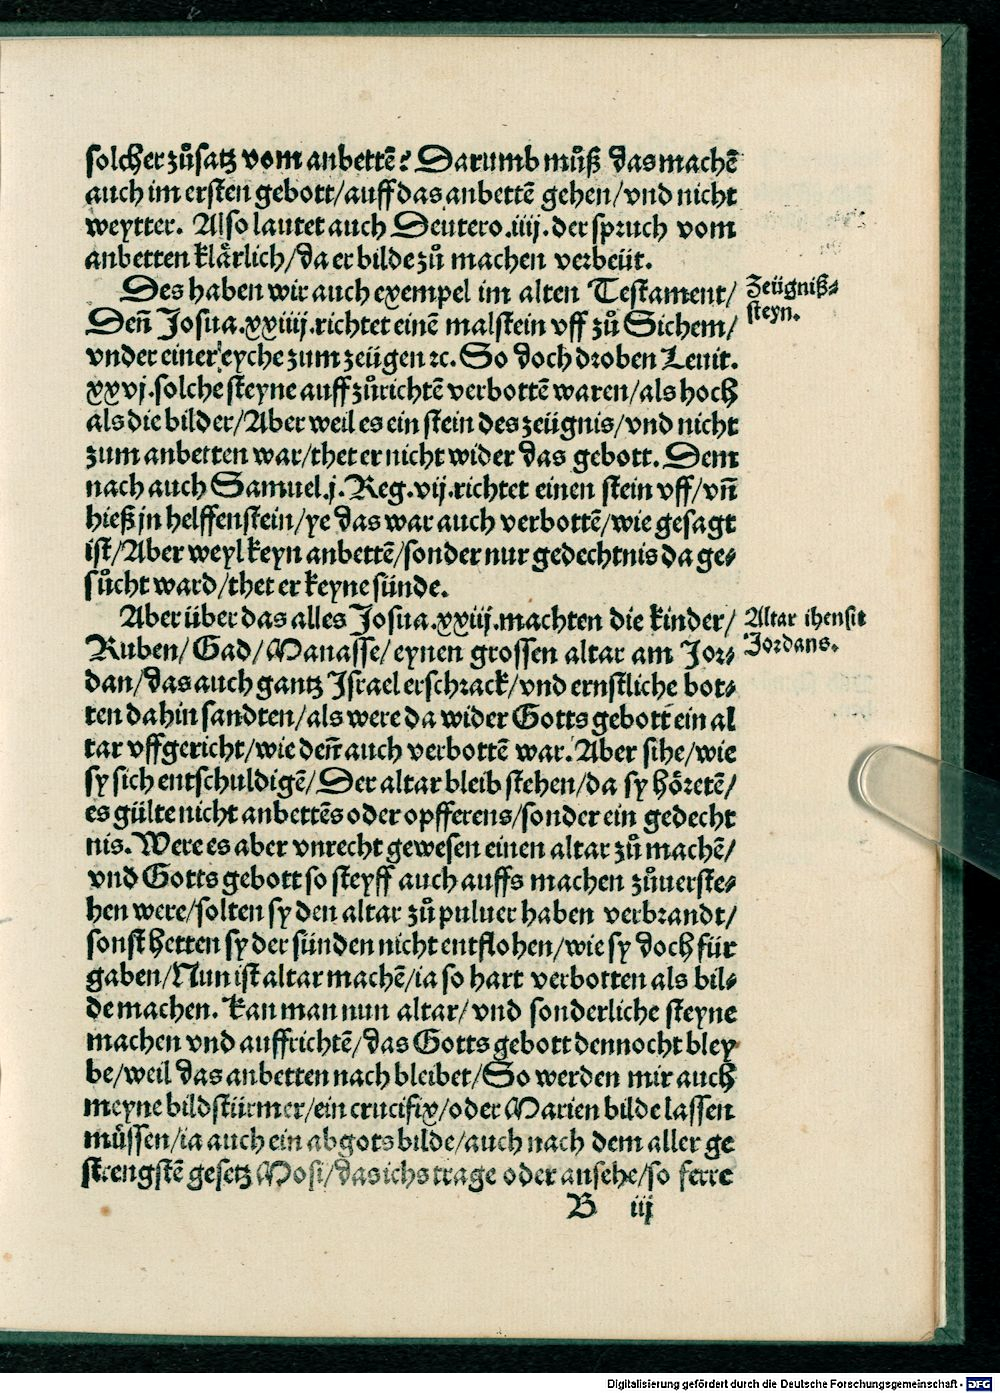 solcher zůsatz vom anbettē? Darumb můß das machē
auch im ersten gebott/auff das anbettē gehen/vnd nicht
weytter. Also lautet auch Deutero.iiij.der spruch vom
anbetten klärlich/da er bilde zů machen verbeüt.
Des haben wir auch exempel im alten Testament/
Zeügniß⸗
steyn.
Deñ Josua.xxiiij.richtet einē malstein vff zů Sichem/
vnder einer eyche zum zeügen ꝛc. So doch droben Leuit.
xxvj.solche steyne auff zůrichtē verbottē waren/als hoch
als die bilder/Aber weil es ein stein des zeügnis/vnd nicht
zum anbetten war/thet er nicht wider das gebott. Dem
nach auch Samuel.j. Reg.vij.richtet einen stein vff/vñ
hieß jn helffenstein/ye das war auch verbottē/wie gesagt
ist/Aber weyl keyn anbettē/sonder nur gedechtnis da ge⸗
sůcht ward/thet er keyne sünde.
Aber über das alles Josua.xxiij.machten die kinder/
Altar ihensit
Jordans.
Ruben/ Gad/Manasse/eynen grossen altar am Jor⸗
dan/das auch gantz Jsrael erschrack/vnd ernstliche bot⸗
ten dahin sandten/als were da wider Gotts gebott ein al
tar vffgericht/wie deñ auch verbottē war. Aber sihe/wie
sy sich entschuldigē/Der altar bleib stehen/da sy höretē/
es gülte nicht anbettēs oder opfferens/sonder ein gedecht
nis. Were es aber vnrecht gewesen einen altar zů machē/
vnd Gotts gebott so steyff auch auffs machen zůuerste⸗
hen were/solten sy den altar zů puluer haben verbrandt/
sonst hetten sy der sünden nicht entflohen/wie sy doch für
gaben/Nun ist altar machē/ia so hart verbotten als bil⸗
de machen. Kan man nun altar/vnd sonderliche steyne
machen vnd auffrichtē/das Gotts gebott dennocht bley
be/weil das anbetten nach bleibet/So werden mir auch
meyne bildstürmer/ein crucifix/oder Marien bilde lassen
müssen/ia auch ein abgots bilde/auch nach dem aller ge
strengstē gesetz Mosi/das ichs trage oder ansehe/so ferre
B iij
Digitalisierung gefördert durch die Deutsche Forschungsgemeinschaft - DFG